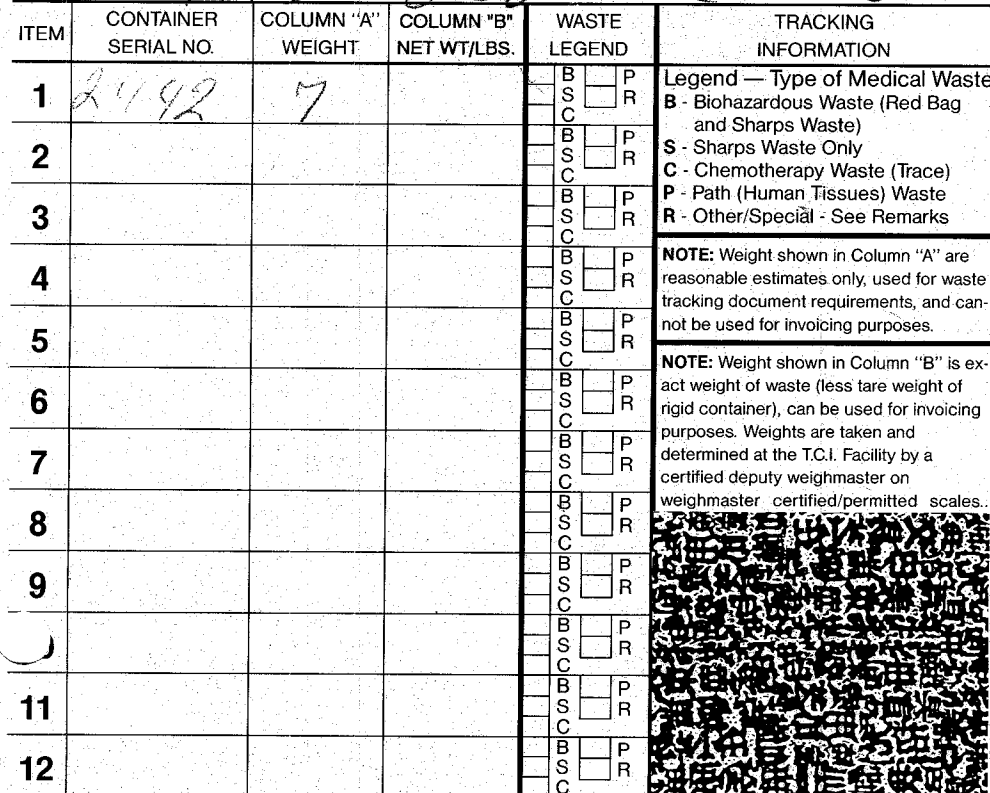 ITEM CONTAINER SERIAL NO. COLUMN "A" WEIGHT COLUMN "B" NET WT/LBS. WASTE LEGEND TRACKING INFORMATION
1 7 B S C P R
2 B S C P R
3 B S C P R
4 B S C P R
5 B S C P R
6 B S C P R
7 B S C P R
8 B S C P R
9 B S C P R
B S C P R
11 B S C P R
12 B S C P R
Legend — Type of Medical Waste
B - Biohazardous Waste (Red Bag
and Sharps Waste)
S - Sharps Waste Only
C - Chemotherapy Waste (Trace)
P - Path (Human Tissues) Waste
R - Other/Special - See Remarks
NOTE: Weight shown in Column "A" are
reasonable estimates only, used for waste
tracking document requirements, and can-
not be used for invoicing purposes.
NOTE: Weight shown in Column "B" is ex-
act weight of waste (less tare weight of
rigid container), can be used for invoicing
purposes. Weights are taken and
determined at the T.C.I. Facility by a
certified deputy weighmaster on
weighmaster certified/permitted scales..